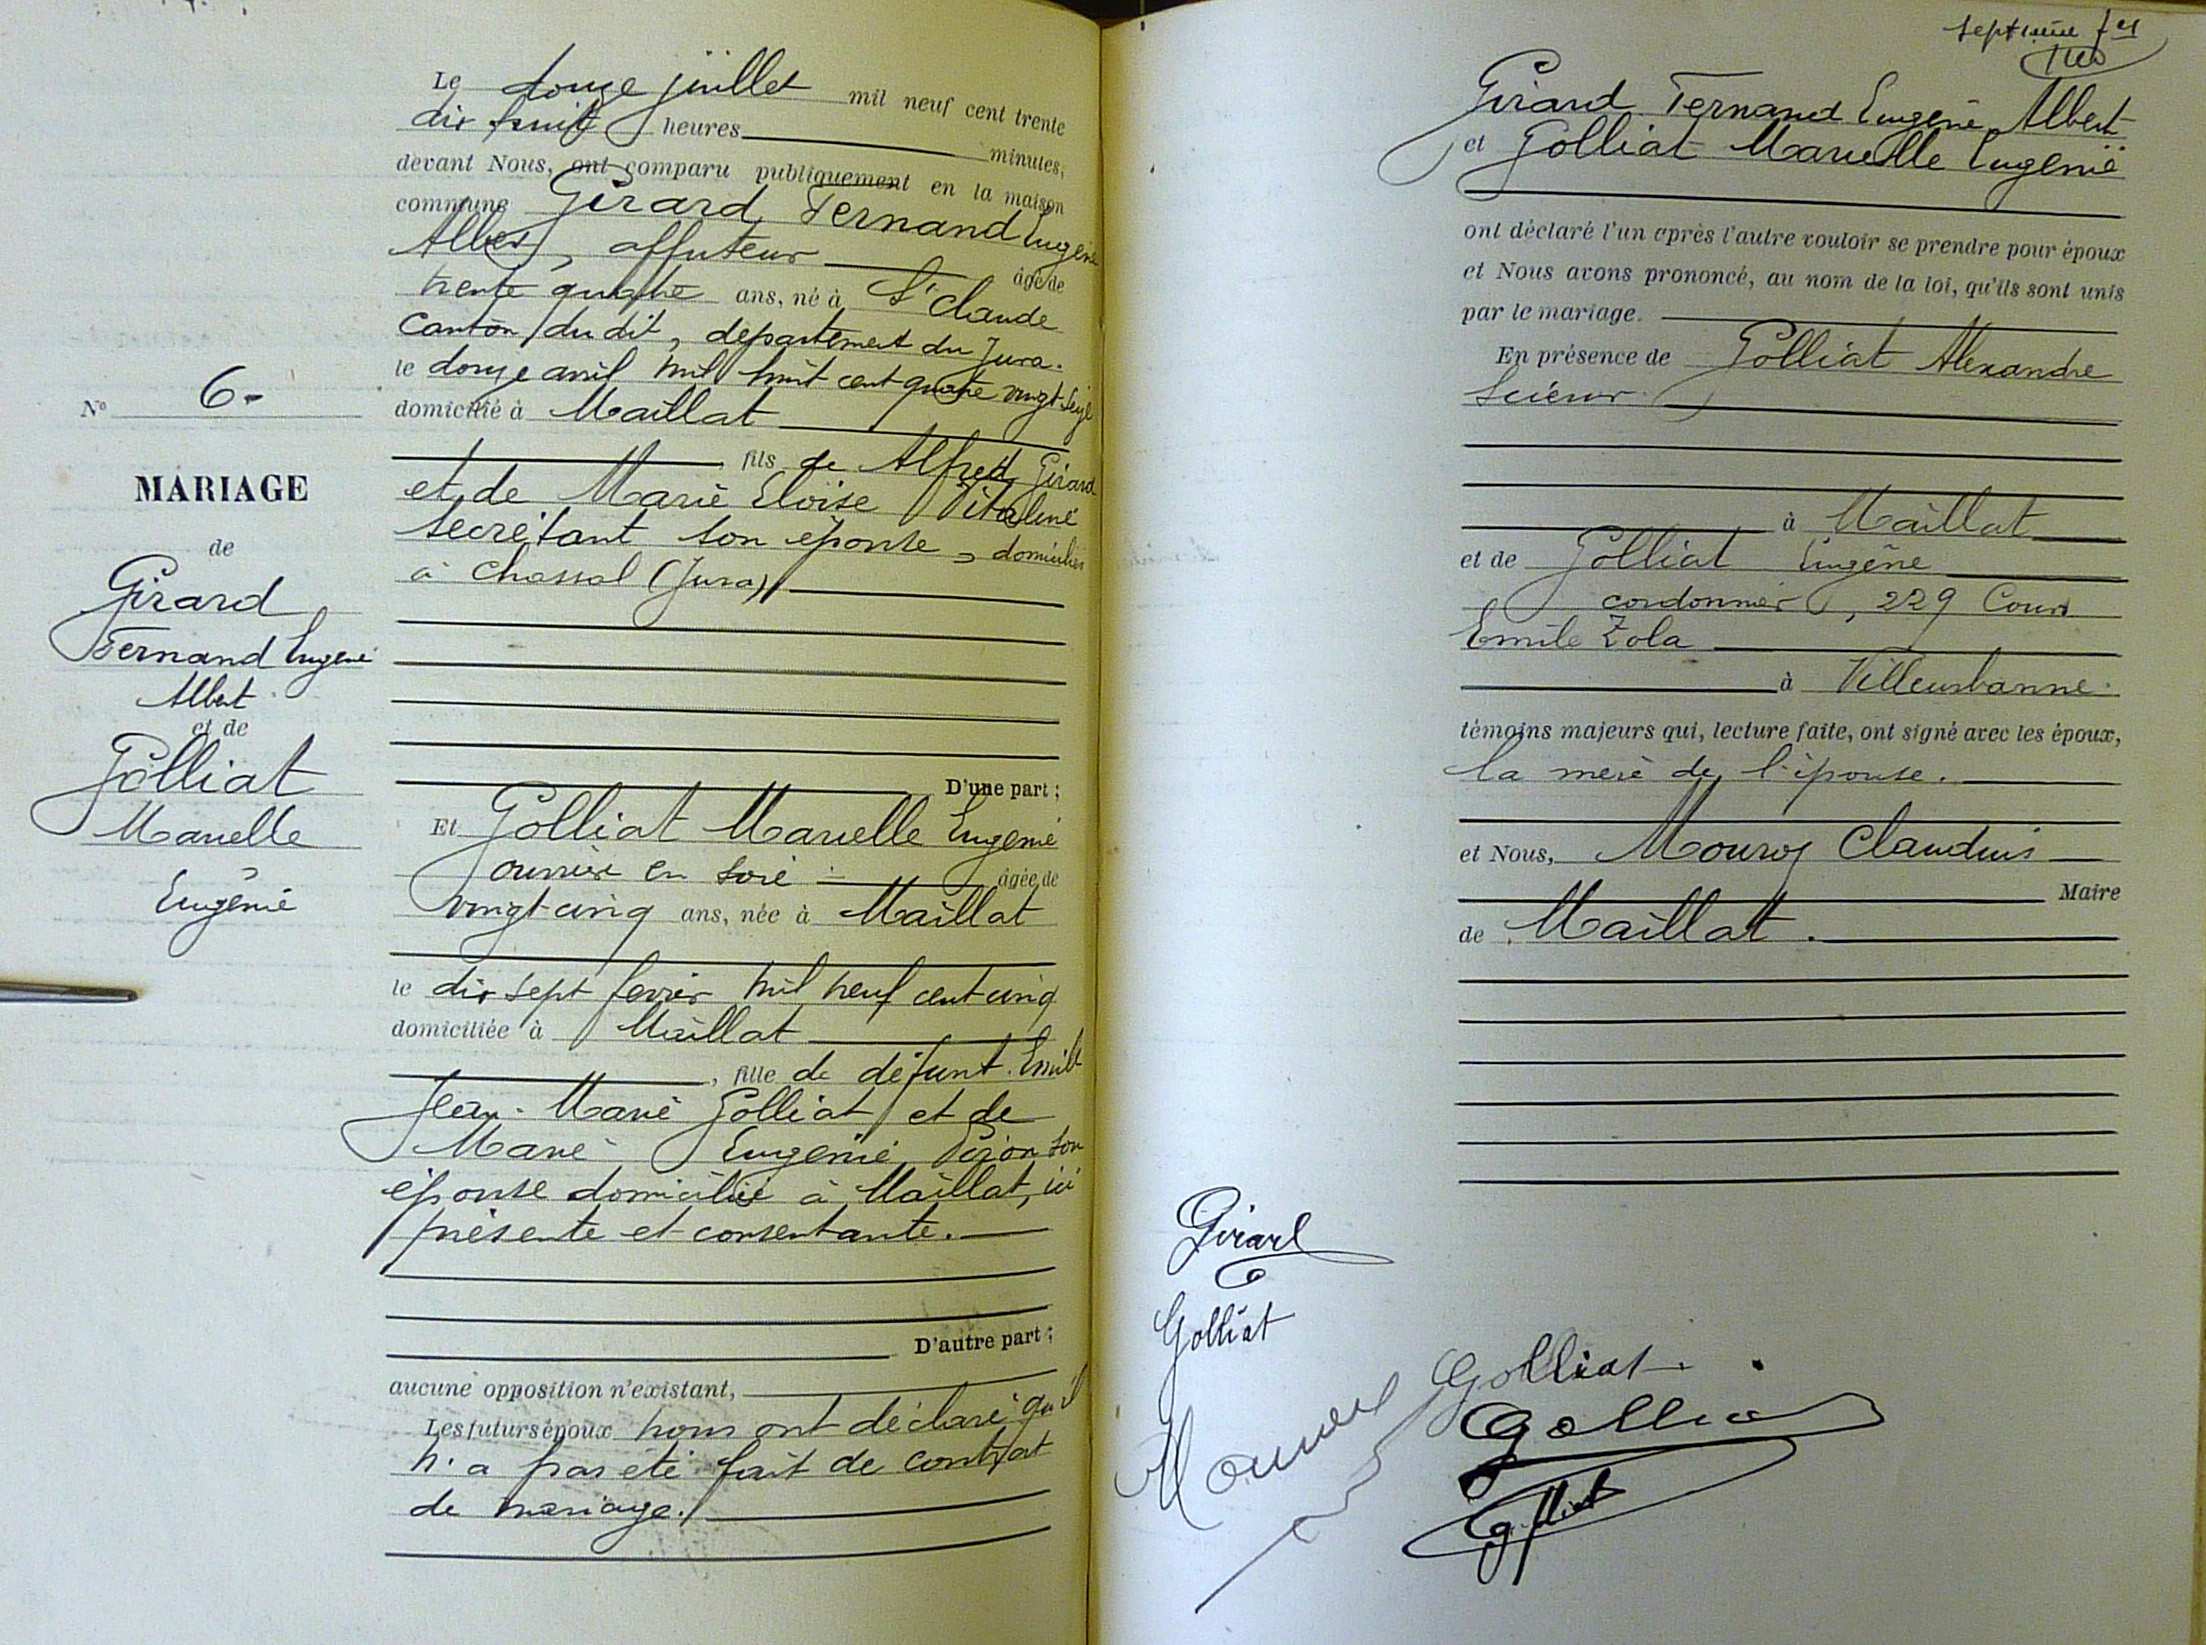 Le douze juillet mil neuf cent trente
dix huit heures minutes,
devant Nous, ont comparu publiquement en la maison
commune Girard Fernand Eugène
Albert, affuteur âgé de
trente quatre ans, né à St Claude
canton du dit, département du Jura.
le douze avril mil huit cent quatre vingt seize
domicilié à Maillat
fils de Alfred Girard
et de Marie Eloïse Vitaline
Secrétant son épouse, domiciliés
à Chassal (Jura)
N° 6-
MARIAGE
de
Girard
Fernand Eugène
Albert
et de
Golliat
Marielle
Eugénie
D'une part ;
Et Golliat Marielle Eugénie
ouvrière en soie âgée de
vingt-cinq ans, née à Maillat
le dix sept février mil neuf cent cinq
domiciliée à Maillat
, fille de défunt Emile
Jean-Marie Golliat et de
Marie Eugénie son
épouse domiciliée à Maillat, ici
présente et consentante.
D'autre part ;
aucune opposition n'existant,
Les futurs époux nous ont déclaré qu'il
n'a pas été fait de contrat
de mariage.
septième fet
Girard Fernand Eugène Albert
et Golliat Marielle Eugénie
ont déclaré l'un après l'autre vouloir se prendre pour époux
et Nous avons prononcé, au nom de la loi, qu'ils sont unis
par le mariage.
En présence de Golliat Alexandre
Scieur
à Maillat
et de Golliat Eugène
cordonnier, 229 Cours
Emile Zola
à Villeurbanne
témoins majeurs qui, lecture faite, ont signé avec les époux,
la mère de l'épouse.
et Nous, Mouroy Claudius
Maire
de Maillat.
Girard
Golliat
Golliat
Golliat
Golliat